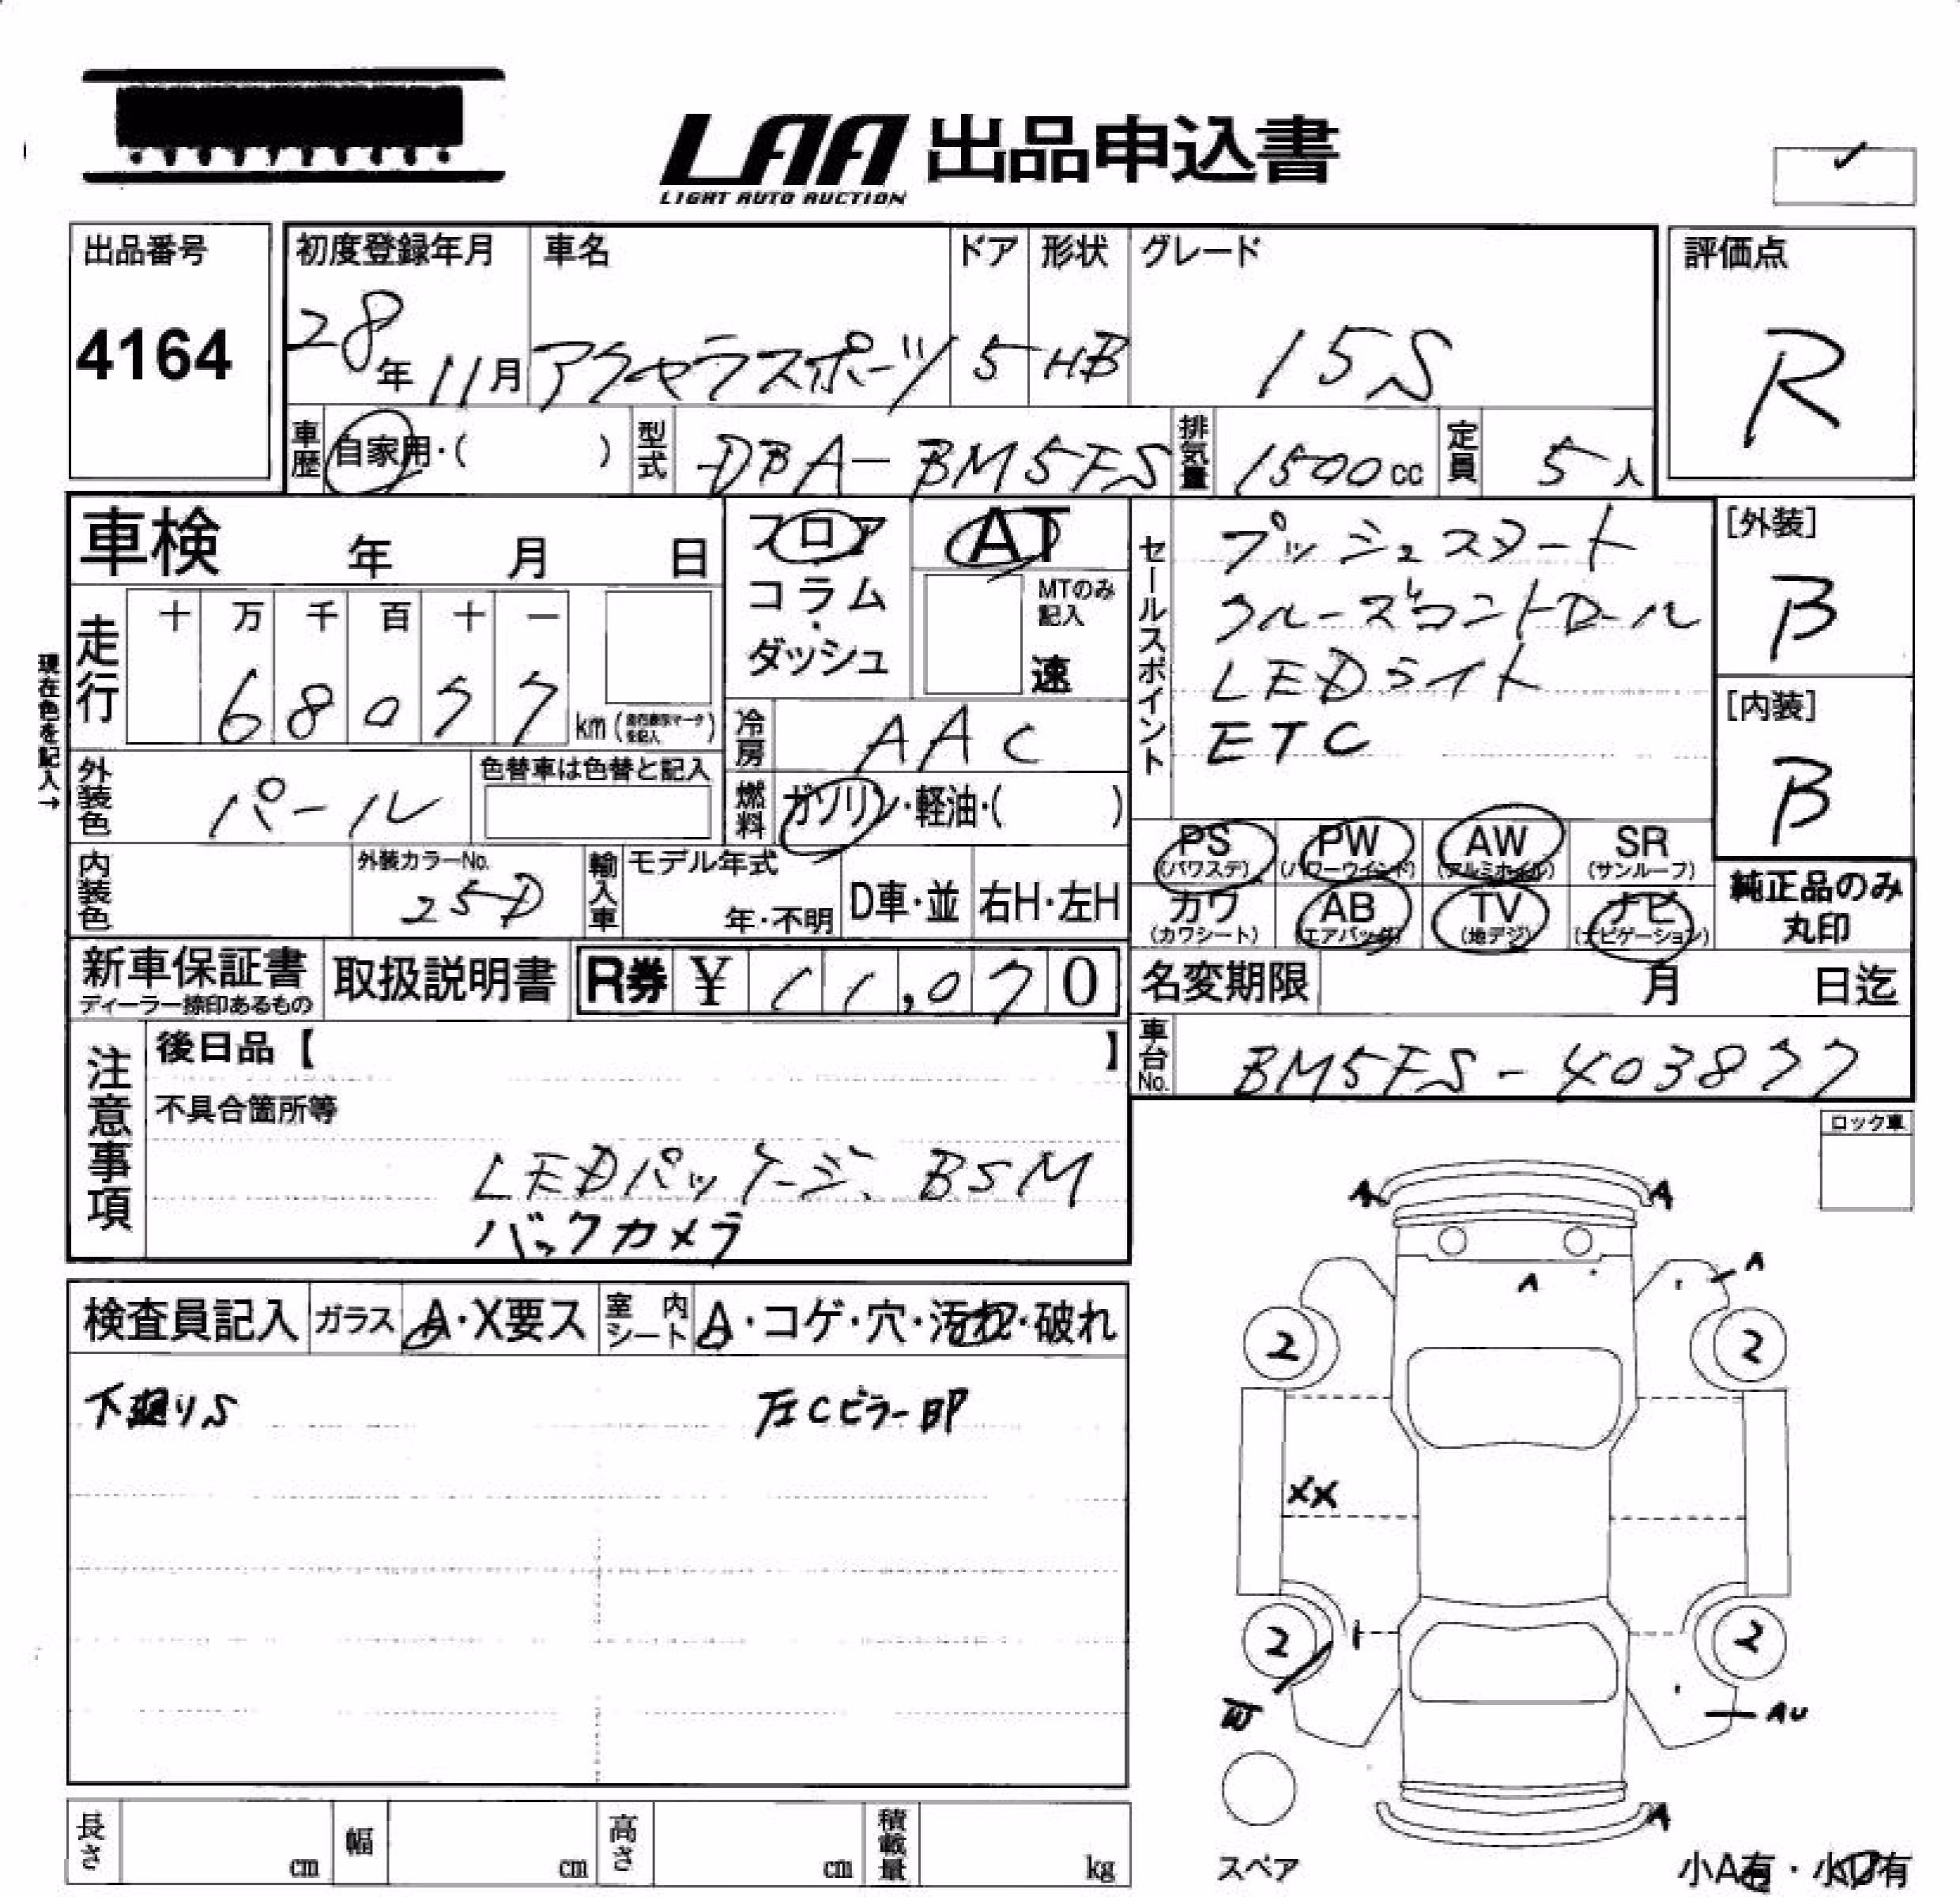 LAA 出品申込書
LIGHT AUTO AUCTION
出品番号
4164
初度登録年月
28年11月
車名
アクセラスポーツ
ドア
5
形状
HB
グレード
15S
評価点
R
車歴 自家用・( )
型式 DBA-BM5FS
排気量 1500cc
定員 5人
車検 年 月 日
フロア
コラム
・
ダッシュ
AT
MTのみ
記入
速
セールスポイント
プッシュスタート
クルーズコントロール
LEDライト
ETC
[外装]
B
[内装]
B
現在色を記入→
走行
十 万 千 百 十 一
6 8 0 7 7 km
冷房 AAC
外装色 パール
色替車は色替と記入
燃料 ガソリン・軽油・( )
PS (パワステ)
PW (パワーウインド)
AW (アルミホイル)
SR (サンルーフ)
カワ (カワシート)
AB (エアバッグ)
TV (地デジ)
ナビ (ナビゲーション)
純正品のみ
丸印
内装色
外装カラーNo.
25D
輸入車
モデル年式
年・不明
D車・並
右H・左H
新車保証書
ディーラー捺印あるもの
取扱説明書
R券 ¥ 11,070
名変期限 月 日迄
車台No. BM5FS-403877
注意事項
後日品【 】
不具合箇所等
LEDパッケージ、BSM
バックカメラ
ロック車
検査員記入
ガラス A・X要ス
室内シート A・コゲ・穴・汚れ・破れ
下廻りS
左Cピラー凹
A A
A
A
2 2
XX
2 2
AU
A
スペア
小A有・小U有
長さ cm
幅 cm
高さ cm
積載量 kg